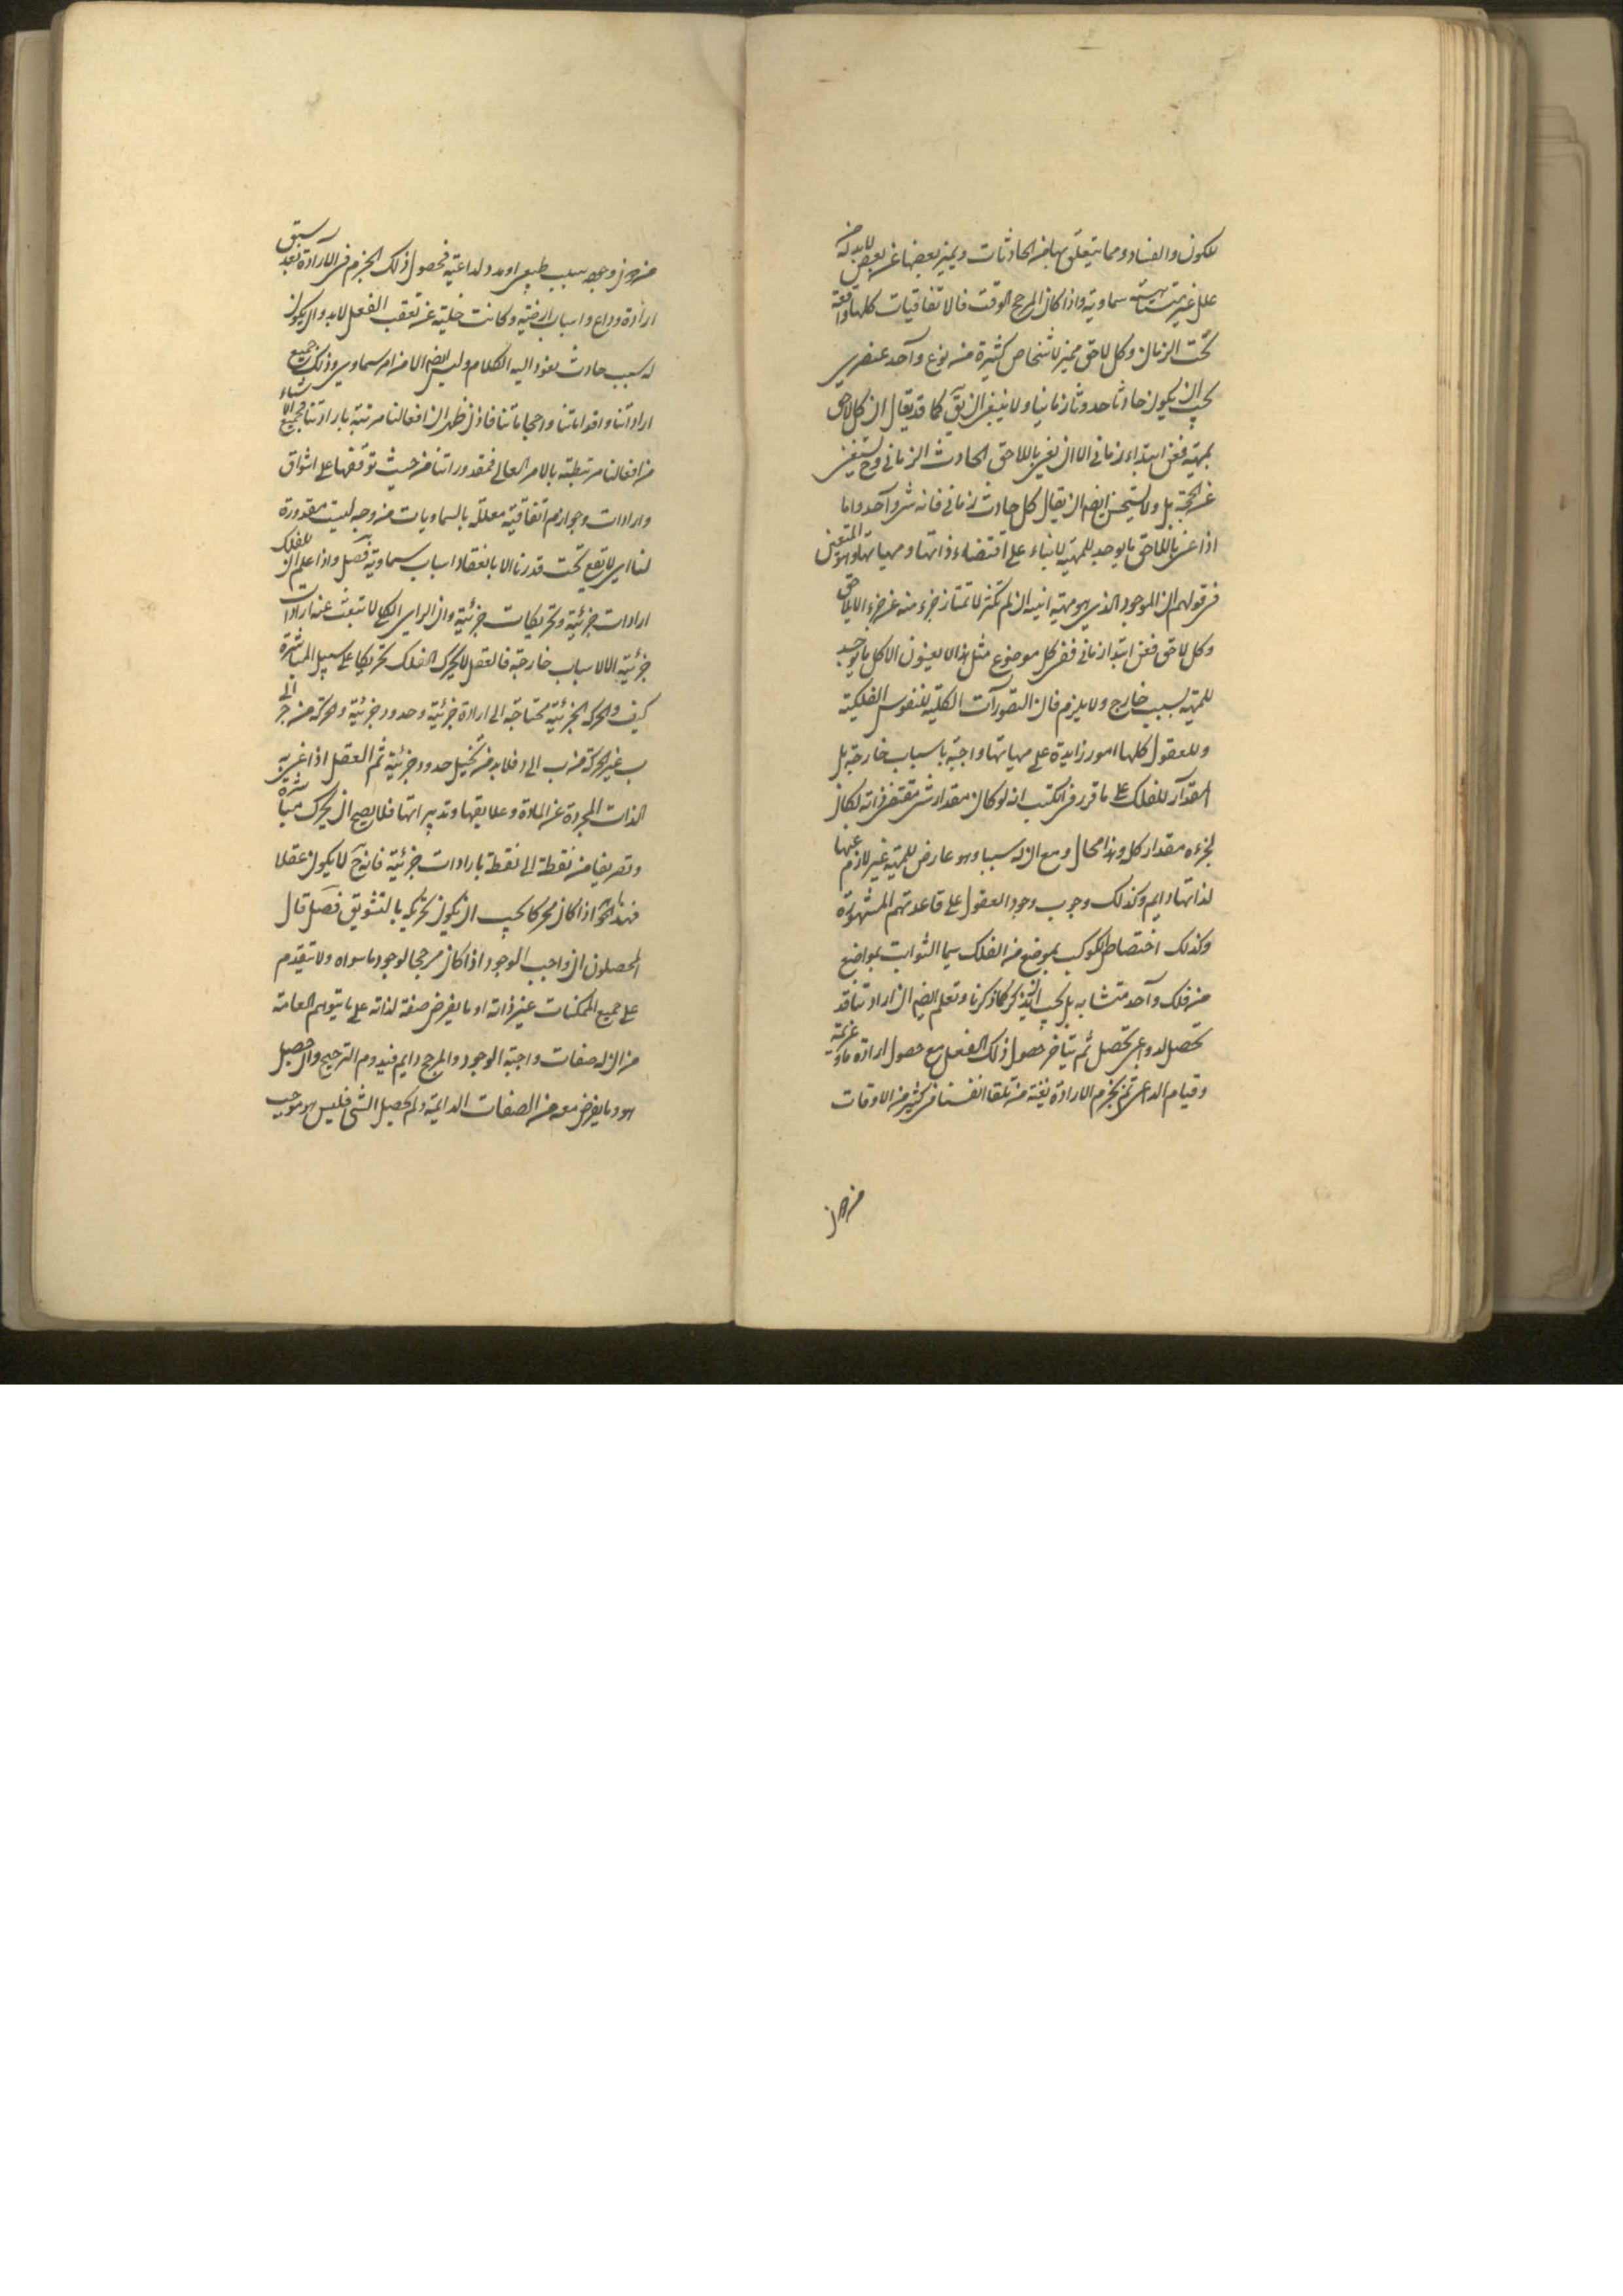 للكون والفساد ومما يتعلق بها من الحادثات ويميز بعضها عن بعض لا بد له من
علل غير متناهية سماوية واذا كان المرجح الوقت فالاتفاقيات كلها واقعة
تحت الزمان وكل لاحق مميز لاشخاص كثيرة من نوع واحد عنصرى
يجب ان يكون حادثا حدوثا زمانيا ولا ينبغى ان يق كما قد يقال ان كل لاحق
بمهية فعن ابتداء زمانى الا ان نعنى باللاحق الحادث الزمانى وح يستغنى
عن الحجة بل ولا يستحسن ايضا ان يقال كل حادث زمانى فانه شىء واحد واما
اذا عنى باللاحق ما يوجد للمهية لا بناء على اقتضاء ذاتها ومهياتها وهو المتعين
فى قولهم ان الموجود الذى هو مهيته انيه ان لم تكثر لا تمتاز جزء منه عن جزء الا بلاحق
وكل لاحق فعن ابتدا زمانى ففى كل موضوع مثل هذا لا يعنون الا كل ما يوجد
للمهية بسبب خارج ولا يلزم فان التصورات الكلية للنفوس الفلكية
وللعقول كلها امور زايدة على مهياتها واجبة باسباب خارجة بل
المقدار للفلك على ما قرر فى الكتب انه لو كان مقدار شىء مقتضى ذاته لكان
لجزءه مقدار كله وهذا محال ومع ان له سببا وهو عارض للمهية غير لازم عنها
لذاتها دايم وكذلك وجوب وجود العقول على قاعدتهم المشهورة
وكذلك اختصاص الكوكب بموضع من الفلك سيما الثوابت بمواضع
من فلك واحد متشابه بل يجب ان يذكر كما ذكرنا وتعلم ايضا ان ارادتنا قد
تحصل لدواعى تحصل ثم يتاخر حصول ذلك الفعل مع حصول ارادة ما وعزيمة
وقيام الداعى ثم نجزم الارادة بغتة من تلقا انفسنا فى كثير من الاوقات
من دون وجه بسبب طبيعى او مدد لداعية فحصول ذلك الجزم فى الارادة بعد سبق
ارادة وداع واسباب ارضية وكانت خلية عن تعقب الفعل لا بد وان يكون
له سبب حادث يعود اليه الكلام وليس ايضا الا من امر سماوى وذلك جميع
اراداتنا واقواتنا واحجاباتنا فاذن ظهر ان افعالنا مرتبة بارادتنا وجميع الاشياء
من افعالنا مرتبطة بالامر العالى فمقدوراتنا من حيث توقفها على اشواق
وارادات وجوازم اتفاقية معللة بالسماويات من وجه ليست مقدورة
لنا اى لا تقع تحت قدرنا الا بانعقاد اسباب سماوية فصل واذا علم ان للفلك
ارادات جزئية وتحريكات جزئية وان الراى الكلى لا تبعث عنه ارادات
جزئية الا لاسباب خارجة فالعقل لا يحرك الفلك تحريكا على سبيل المباشرة
كيف والحركة الجزئية محتاجة الى ارادة جزئية وحدود جزئية والحركة من ج الى
ب غير الحركة من ب الى د فلا بد من تخيل حدود جزئية ثم العقل اذا عنى به
الذات المجردة عن المادة وعلايقها وتدبيراتها فلا يصح ان يحرك مباشرة
وتصريفا من نقطة الى نقطة بارادات جزئية فانه ح لا يكون عقلا
فهذا النحو اذا كان محركا يجب ان يكون تحريكه بالتشويق فصل قال
المحصلون ان واجب الوجود اذا كان مرجحا لوجود ما سواه ولا يتقدم
على جميع الممكنات غير ذاته او ما يفرض صفة لذاته على ما يتوهم العامة
من ان له صفات واجبة الوجود والمرجح دايم فيدوم الترجيح وان حصل
هو وما يفرض معه من الصفات الدائمة ولم يحصل الشىء فليس هو موجب
من دون